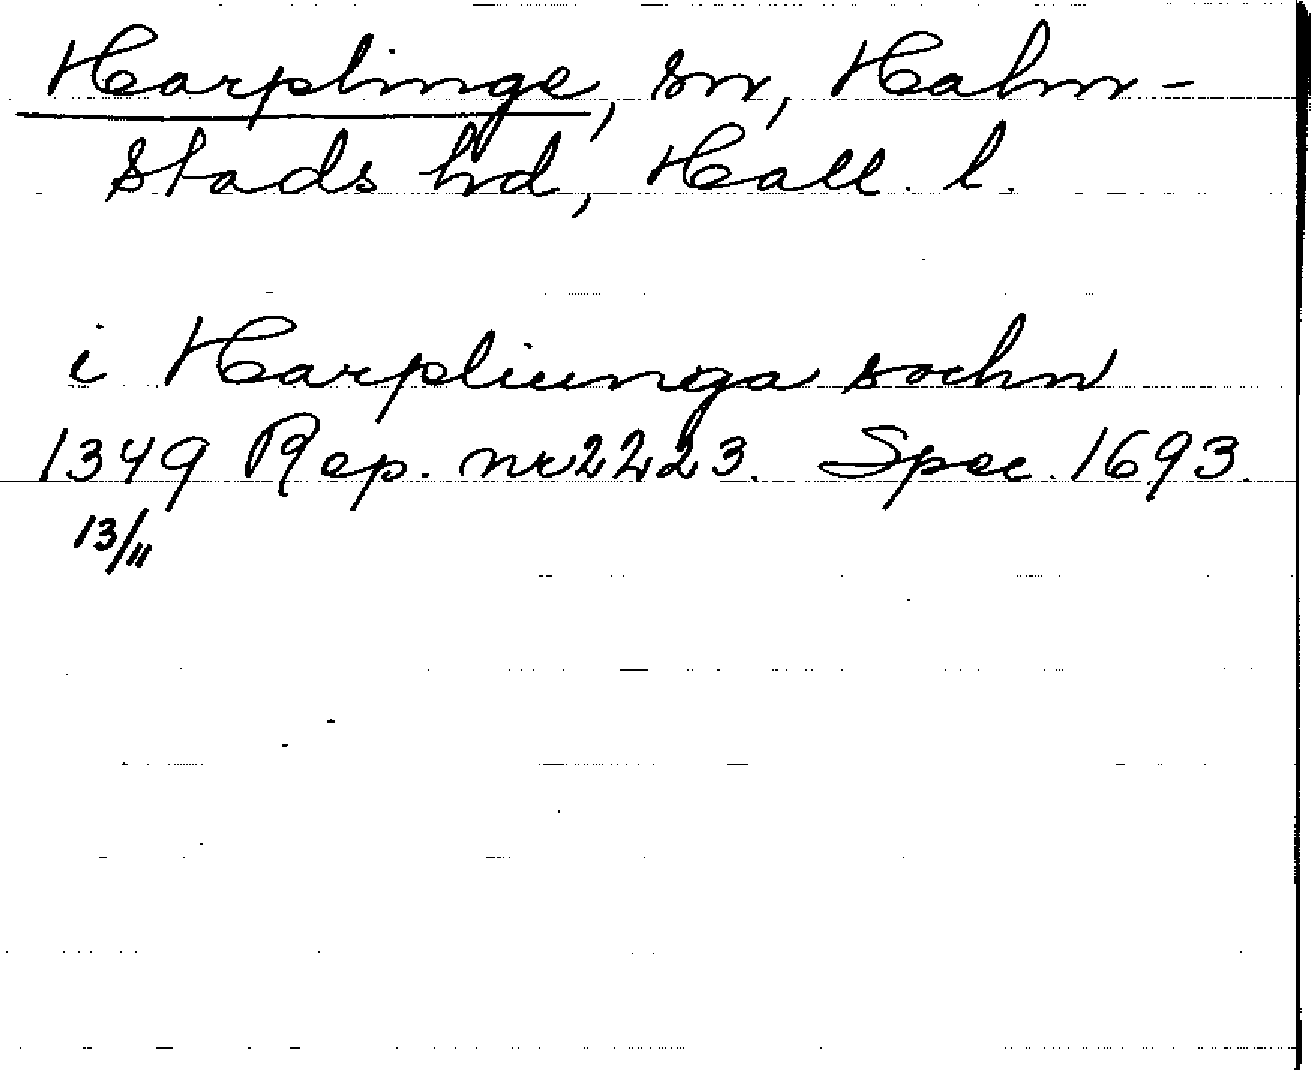 Harplinge, sn, Halm-
stads hd, Hall. l.
i Harpliunga sochn
1349 Rep. nr 2223. Spec. 1693.
13/11